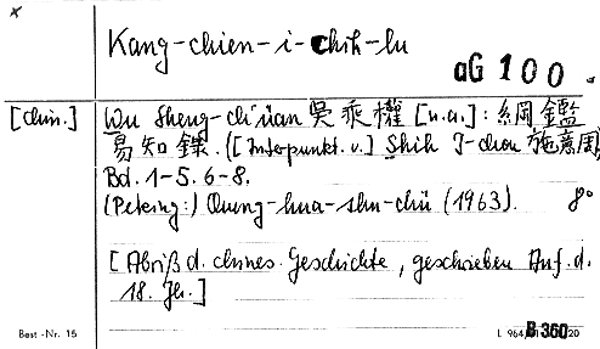 x
Kang-chien-i-chih-lu
aG 100.
[chin.]
Wu Sheng-ch'üan 吳乘權 [u.a.]: 綱鑑
易知錄. ([Interpunkt. v.] Shih I-chou 施意周)
Bd. 1-5. 6-8.
(Peking:) Chung-hua-shu-chü (1963). 8°
[Abriß d. chines. Geschichte, geschrieben Anf. d.
18. Jh.]
Best.-Nr. 15
L 964 B 360 20